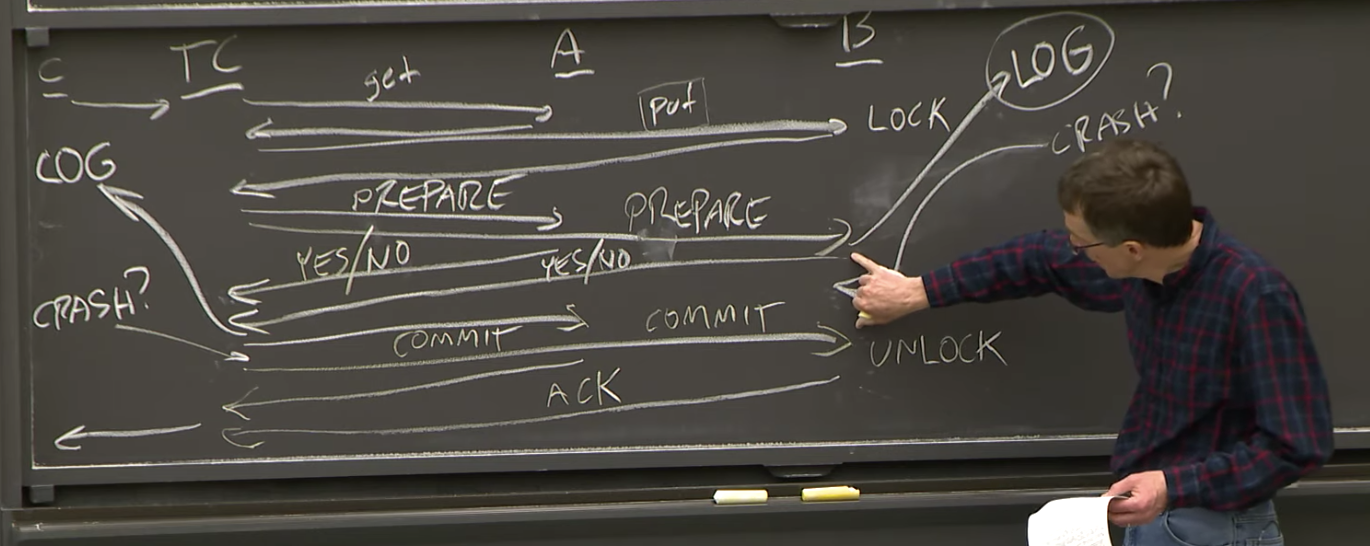 C TC A B
get
put
LOG
LOCK
CRASH?
LOG
PREPARE PREPARE
YES/NO YES/NO
CRASH?
COMMIT COMMIT
UNLOCK
ACK